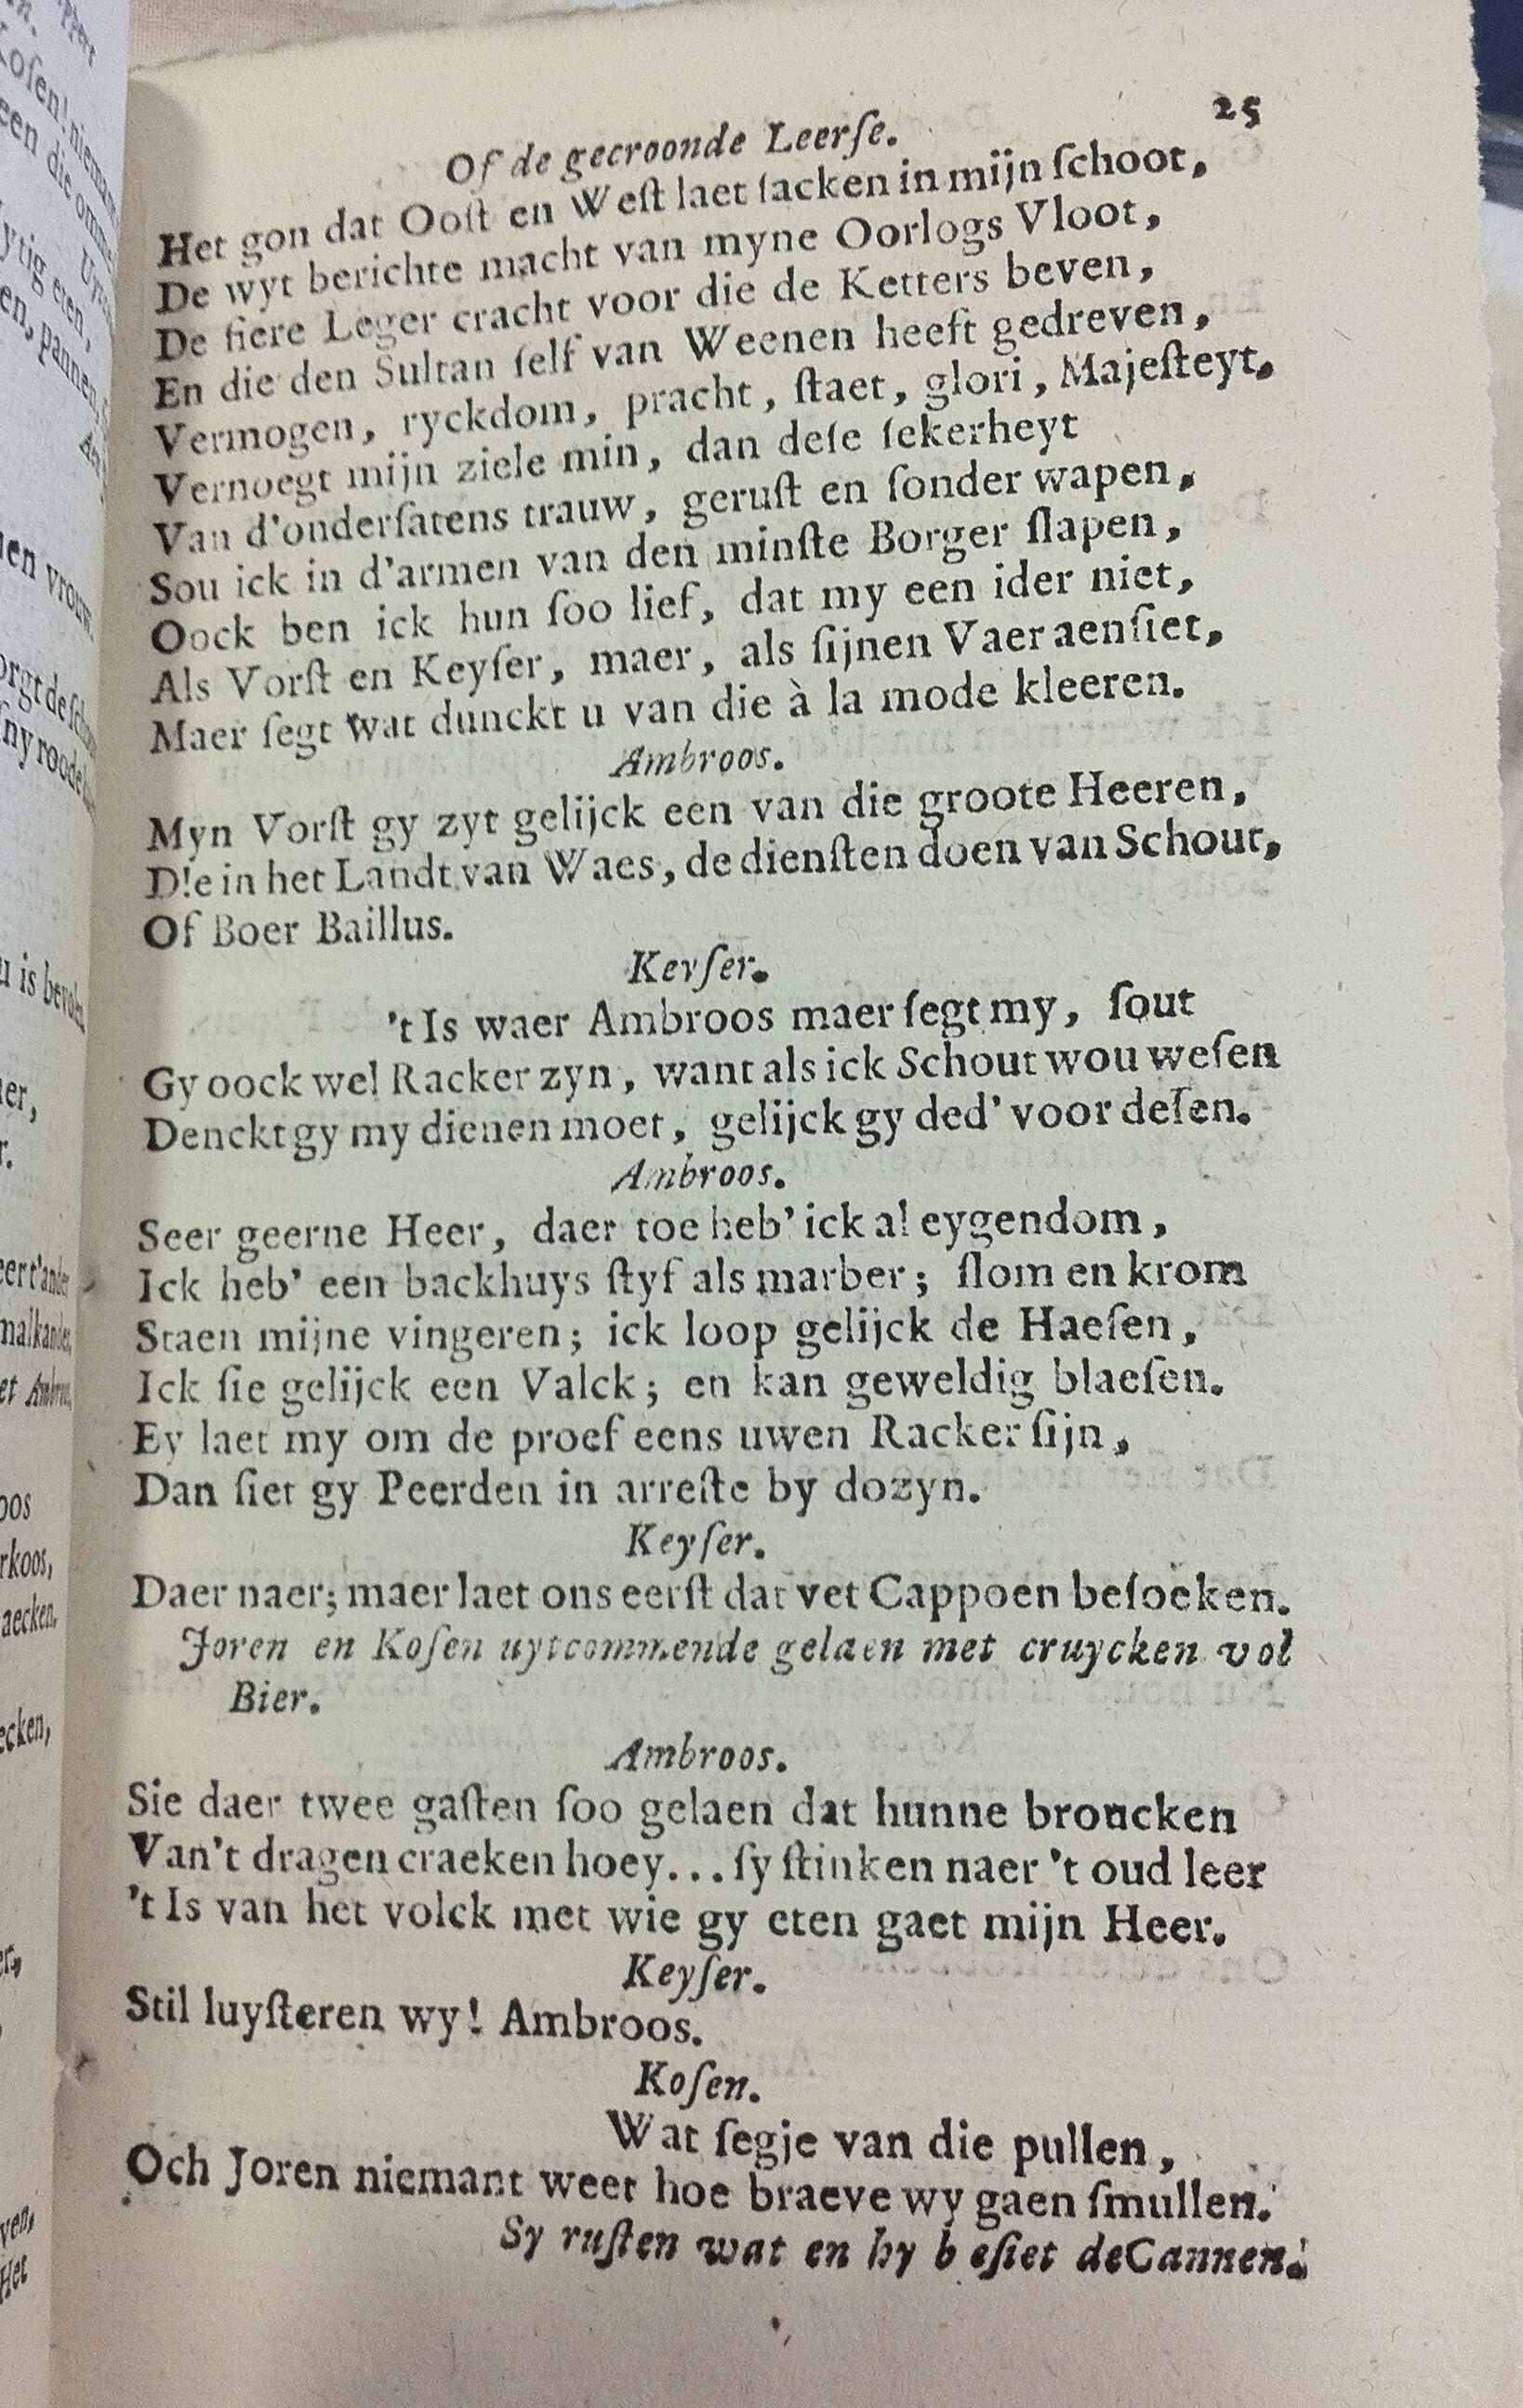 25
Of de gecroonde Leerſe.
Het gon dat Ooſt en Weſt laet ſacken in mijn ſchoot,
De wyt berichte macht van myne Oorlogs Vloot,
De fiere Leger cracht voor die de Ketters beven,
En die den Sultan ſelf van Weenen heeft gedreven,
Vermogen, ryckdom, pracht, ſtaet, glori, Majeſteyt,
Vernoegt mijn ziele min, dan deſe ſekerheyt
Van d'onderſatens trauw, geruſt en ſonder wapen,
Sou ick in d'armen van den minſte Borger ſlapen,
Oock ben ick hun ſoo lief, dat my een ider niet,
Als Vorſt en Keyſer, maer, als ſijnen Vaer aenſiet,
Maer ſegt wat dunckt u van die à la mode kleeren.
Ambroos.
Myn Vorſt gy zyt gelijck een van die groote Heeren,
Die in het Landt van Waes, de dienſten doen van Schout,
Of Boer Baillus.
Keyſer.
't Is waer Ambroos maer ſegt my, ſout
Gy oock wel Racker zyn, want als ick Schout wou weſen
Denckt gy my dienen moet, gelijck gy ded' voor deſen.
Ambroos.
Seer geerne Heer, daer toe heb' ick al eygendom,
Ick heb' een backhuys ſtyf als marber; ſlom en krom
Staen mijne vingeren; ick loop gelijck de Haeſen,
Ick ſie gelijck een Valck; en kan geweldig blaeſen.
Ey laet my om de proef eens uwen Racker ſijn,
Dan ſiet gy Peerden in arreſte by dozyn.
Keyſer.
Daer naer; maer laet ons eerſt dat vet Cappoen beſoeken.
Joren en Koſen uytcommende gelaen met cruycken vol
Bier.
Ambroos.
Sie daer twee gaſten ſoo gelaen dat hunne broucken
Van't dragen craeken hoey... ſy ſtinken naer 't oud leer
't Is van het volck met wie gy eten gaet mijn Heer.
Keyſer.
Stil luyſteren wy! Ambroos.
Koſen.
Wat ſegje van die pullen,
Och Joren niemant weet hoe braeve wy gaen ſmullen.
Sy ruſten wat en hy b eſiet deCannen.